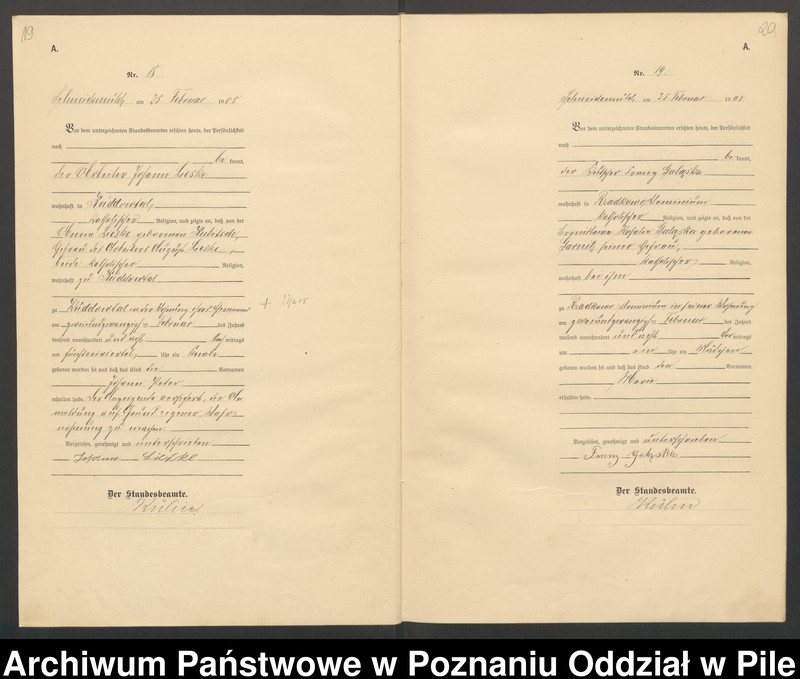 19
A.
Nr. 18
Schneidemühl am 25 Februar 1908
Vor dem unterzeichneten Standesbeamten erschien heute, der Persönlichkeit
nach
be kannt,
der Arbeiter Johann Lieske
wohnhaft in Küddowtal,
katholischer Religion, und zeigte an, daß von der
Anna Lieske geborenen
Ehefrau des Arbeiters August Lieske,
beide katholischer Religion,
wohnhaft zu Küddowtal
zu Küddowtal in der Wohnung
am zweiundzwanzigsten Februar des Jahres
tausend neunhundert und acht Nachmittags
um Uhr ein Knabe
geboren worden sei und daß das Kind die Vornamen
Johann Peter
erhalten habe. Der Anzeigende versichert, die An-
meldung auf Grund eigener Wahr-
nehmung zu machen.
Vorgelesen, genehmigt und unterschrieben
Johann
Der Standesbeamte.
20
A.
Nr. 19
Schneidemühl am 25 Februar 1908
Vor dem unterzeichneten Standesbeamten erschien heute, der Persönlichkeit
nach
be kannt,
der Franz Galzska
wohnhaft in Dominium
katholischer Religion, und zeigte an, daß von der
Rosalia Galzska geborenen
seiner Ehefrau,
katholischer Religion,
wohnhaft bei ihm
zu Dominium in seiner Wohnung
am zweiundzwanzigsten Februar des Jahres
tausend neunhundert und acht Vormittags
um ein Uhr ein Mädchen
geboren worden sei und daß das Kind den Vornamen
Marie
erhalten habe.
Vorgelesen, genehmigt und unterschrieben
Franz Galzska
Der Standesbeamte.
Archiwum Państwowe w Poznaniu Oddział w Pile